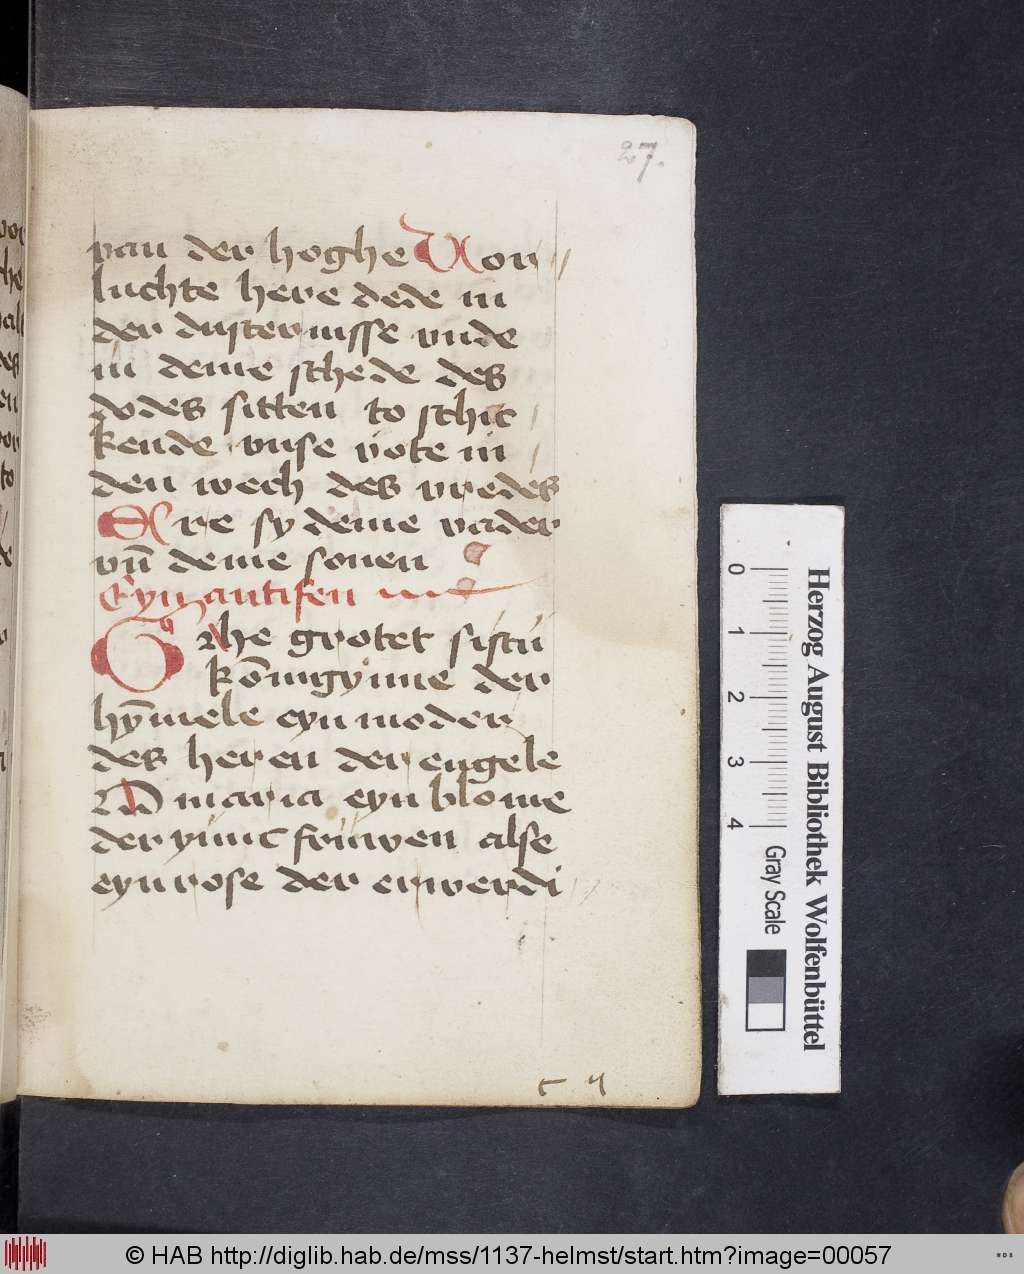 27.
van der hoghe Vor
luchte here dede in
der dusternisse vnde
in deme schede des
dodes sitten to schic
kende vnse vote in
den wech des vredes
Ere sy deme vader
vn̄ deme sonen
Eyn antifen
Ghe grotet sistu
kōnigynne der
hȳmele eyn moder
des heren der engele
O maria eyn blome
der yunc fruwen alse
eyn rose der erwerdi
c ij
0 1 2 3 4
Gray Scale
Herzog August Bibliothek Wolfenbüttel
© HAB http://diglib.hab.de/mss/1137-helmst/start.htm?image=00057